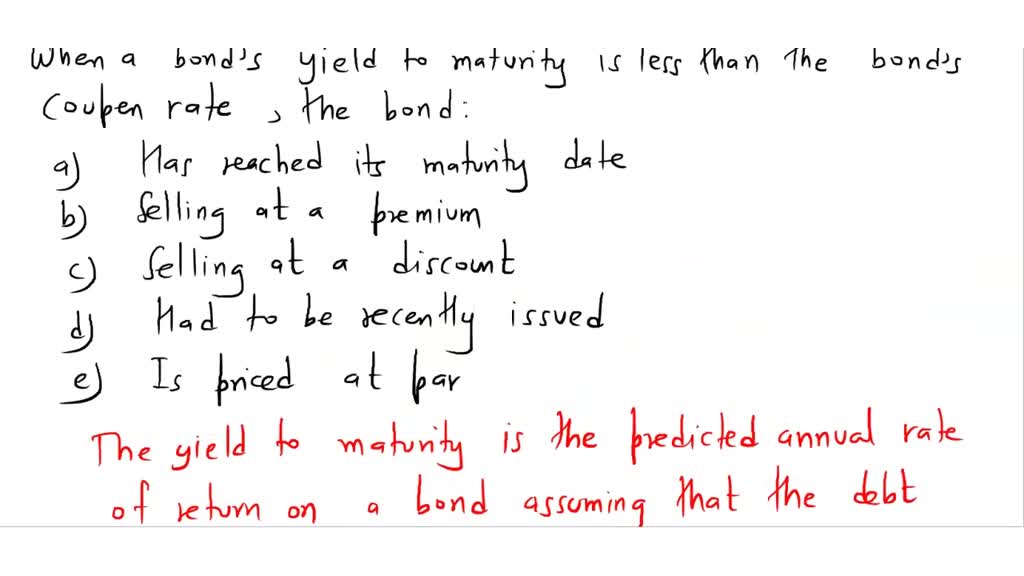 When a bond's yield to maturity is less than the bond's
coupen rate, the bond:
a) Has reached its maturity date
b) Selling at a premium
c) Selling at a discount
d) Had to be recently issued
e) Is priced at par
The yield to maturity is the predicted annual rate
of return on a bond assuming that the debt